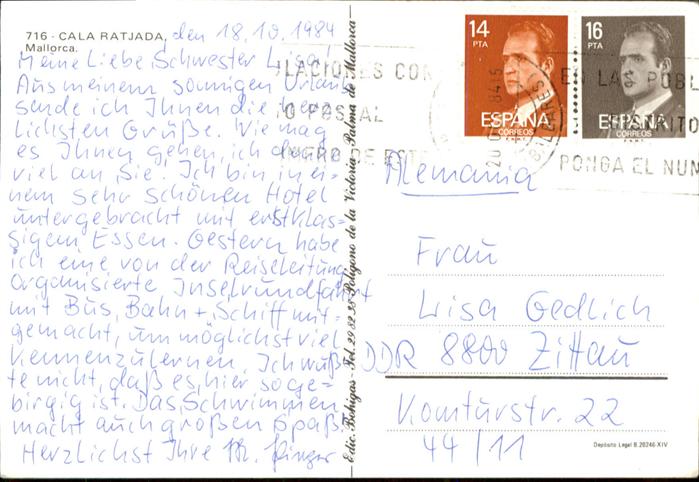 716 - CALA RATJADA,
Mallorca.
den 18.10.1984
Meine Liebe Schwester Lisa!
Aus meinem sonnigen Urlaub
sende ich Ihnen die herz-
lichsten Grüße. Wie mag
es Ihnen gehen, ich denke
viel an Sie. Ich bin in ei-
nem sehr schönen Hotel
untergebracht mit erstklas-
sigem Essen. Gestern habe
ich eine von der Reiseleitung
organisierte Inselrundfahrt
mit Bus, Bahn + Schiff mit-
gemacht, um möglichst viel
kennenzulernen. Ich wuß-
te nicht, daß es hier so ge-
birgig ist. Das Schwimmen
macht auch großen Spaß.
Herzlichst Ihre
Edic. Bohigas - Tel. 29 82 35 Polígono de la Victoria - Palma de Mallorca
14
PTA
ESPAÑA
CORREOS
16
PTA
ESPAÑA
CORREOS
LACIONES CON
POSTAL
EN LA POBL
PONGA EL NUM
BALEARES
Alemania
Frau
Lisa Gedlich
DDR 8800 Zittau
Komturstr. 22
44/11
Depósito Legal B. 20246-XIV